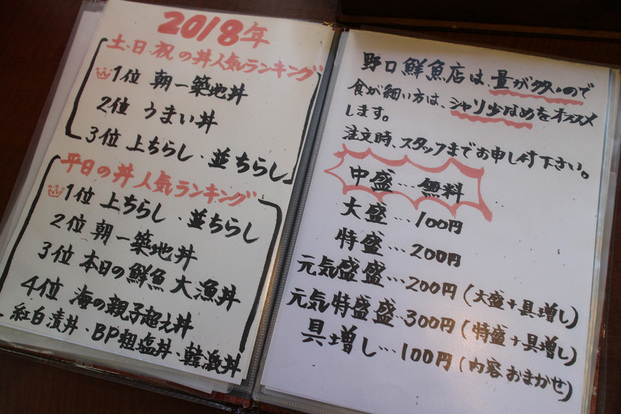 2018年
土・日・祝の丼人気ランキング
1位 朝一築地丼
2位 うまい丼
3位 上ちらし・並ちらし
平日の丼人気ランキング
1位 上ちらし、並ちらし
2位 朝一築地丼
3位 本日の鮮魚 大漁丼
4位 海の親子超え丼
紅白漬丼・BP粗塩丼・韓派丼
野口鮮魚店は、量が多いので
食が細い方は、シャリ少なめをオススメ
します。
注文時、スタッフまでお申し付下さい。
中盛…無料
大盛…100円
特盛…200円
元気盛盛…200円(大盛+具増し)
元気特盛盛…300円(特盛+具増し)
具増し…100円(内容おまかせ)